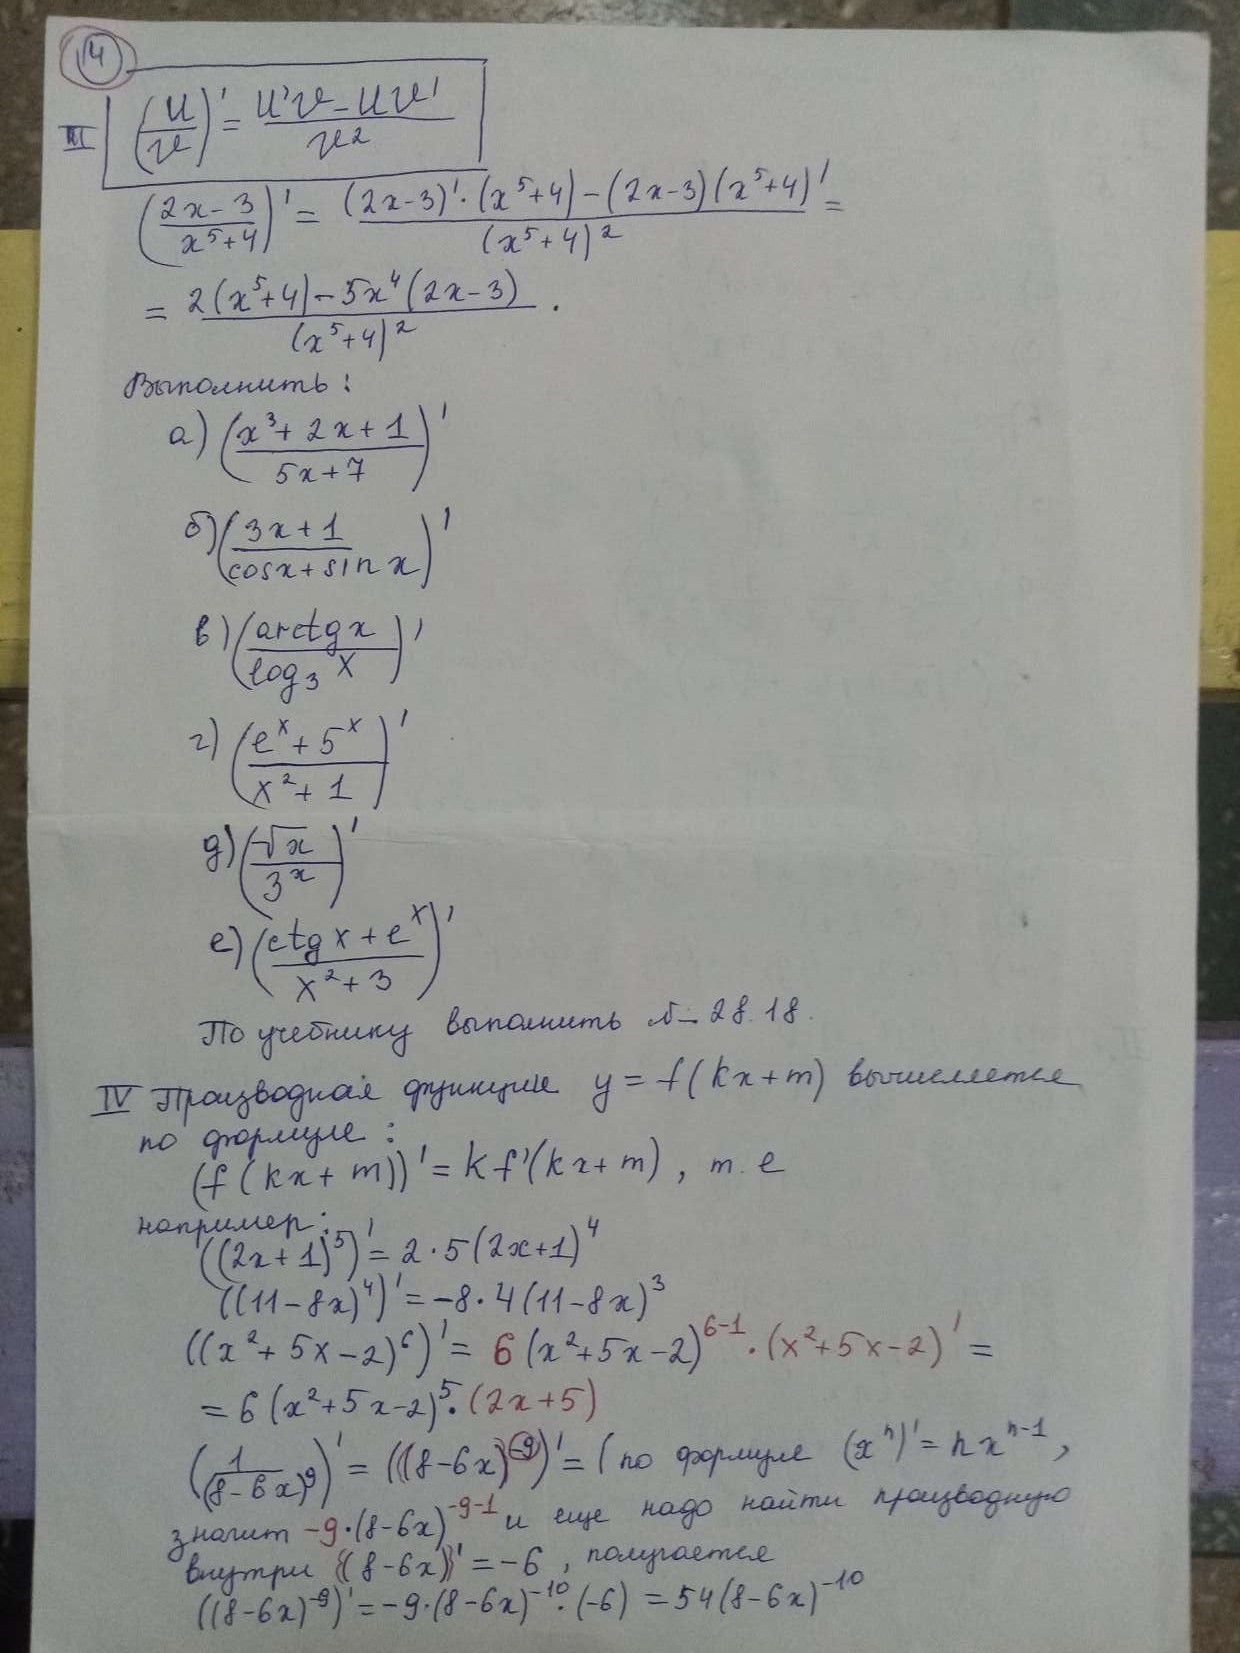 14
III (u/v)' = (u'v - uv')/v²
((2x-3)/(x⁵+4))' = ((2x-3)'·(x⁵+4) - (2x-3)(x⁵+4)')/(x⁵+4)² =
= (2(x⁵+4) - 5x⁴(2x-3))/(x⁵+4)² .
Выполнить:
а) ((x³+2x+1)/(5x+7))'
б) ((3x+1)/(cosx+sin x))'
в) (arctg x/log₃ x)'
г) ((eˣ+5ˣ)/(x²+1))'
д) (√x/3ˣ)'
е) ((ctg x+eˣ)/(x²+3))'
По учебнику выполнить № 28.18.
IV Производная функции y = f(kx+m) вычисляется
по формуле:
(f(kx+m))' = kf'(kx+m), т.е
например:
((2x+1)⁵)' = 2·5(2x+1)⁴
((11-8x)⁴)' = -8·4(11-8x)³
((x²+5x-2)⁶)' = 6(x²+5x-2)⁶⁻¹·(x²+5x-2)' =
= 6(x²+5x-2)⁵·(2x+5)
(1/(8-6x)⁹)' = ((8-6x)⁻⁹)' = (по формуле (xⁿ)' = nxⁿ⁻¹,
значит -9·(8-6x)⁻⁹⁻¹ и еще надо найти производную
внутри (8-6x)' = -6, получается
((8-6x)⁻⁹)' = -9·(8-6x)⁻¹⁰·(-6) = 54(8-6x)⁻¹⁰